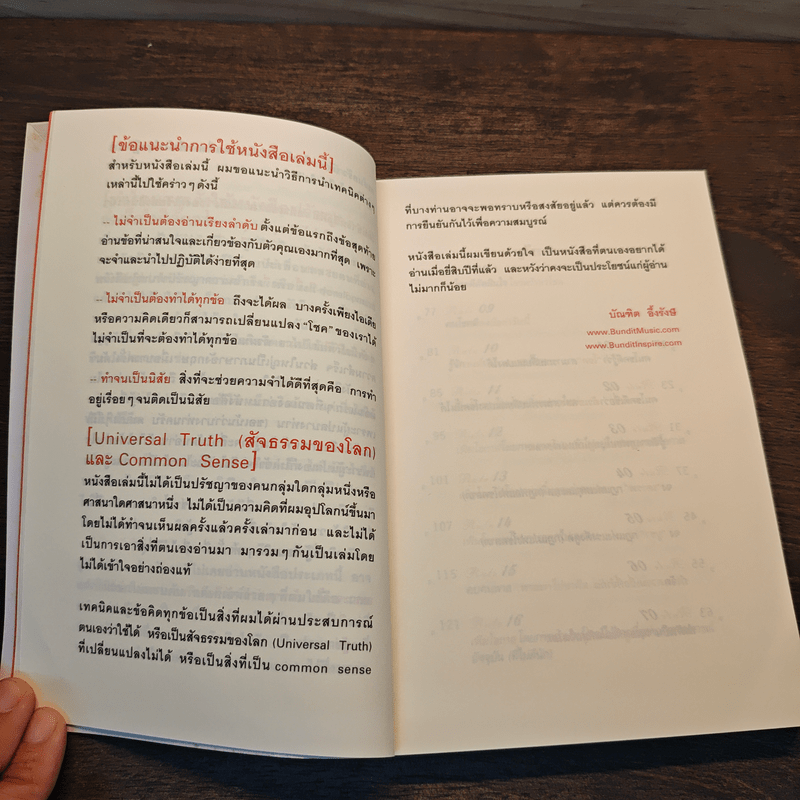 [ข้อแนะนำการใช้หนังสือเล่มนี้]
สำหรับหนังสือเล่มนี้ ผมขอแนะนำวิธีการนำเทคนิคต่างๆ
เหล่านี้ไปใช้คร่าวๆ ดังนี้
-- ไม่จำเป็นต้องอ่านเรียงลำดับ ตั้งแต่ข้อแรกถึงข้อสุดท้าย
อ่านข้อที่น่าสนใจและเกี่ยวข้องกับตัวคุณเองมากที่สุด เพราะ
จะจำและนำไปปฏิบัติได้ง่ายที่สุด
-- ไม่จำเป็นต้องทำได้ทุกข้อ ถึงจะได้ผล บางครั้งเพียงไอเดีย
หรือความคิดเดียวก็สามารถเปลี่ยนแปลง "โชค" ของเราได้
ไม่จำเป็นที่จะต้องทำได้ทุกข้อ
-- ทำจนเป็นนิสัย สิ่งที่จะช่วยความจำได้ดีที่สุดคือ การทำ
อยู่เรื่อยๆ จนติดเป็นนิสัย
[Universal Truth (สัจธรรมของโลก)
และ Common Sense]
หนังสือเล่มนี้ไม่ได้เป็นปรัชญาของคนกลุ่มใดกลุ่มหนึ่งหรือ
ศาสนาใดศาสนาหนึ่ง ไม่ได้เป็นความคิดที่ผมอุปโลกน์ขึ้นมา
โดยไม่ได้ทำจนเห็นผลครั้งแล้วครั้งเล่ามาก่อน และไม่ได้
เป็นการเอาสิ่งที่ตนเองอ่านมา มารวมๆ กันเป็นเล่มโดย
ไม่ได้เข้าใจอย่างถ่องแท้
เทคนิคและข้อคิดทุกข้อเป็นสิ่งที่ผมได้ผ่านประสบการณ์
ตนเองว่าใช้ได้ หรือเป็นสัจธรรมของโลก (Universal Truth)
ที่เปลี่ยนแปลงไม่ได้ หรือเป็นสิ่งที่เป็น common sense
ที่บางท่านอาจจะพอทราบหรือสงสัยอยู่แล้ว แต่ควรต้องมี
การยืนยันกันไว้เพื่อความสมบูรณ์
หนังสือเล่มนี้ผมเขียนด้วยใจ เป็นหนังสือที่ตนเองอยากได้
อ่านเมื่อยี่สิบปีที่แล้ว และหวังว่าคงจะเป็นประโยชน์แก่ผู้อ่าน
ไม่มากก็น้อย
บัณฑิต อึ้งรังษี
www.BunditMusic.com
www.BunditInspire.com